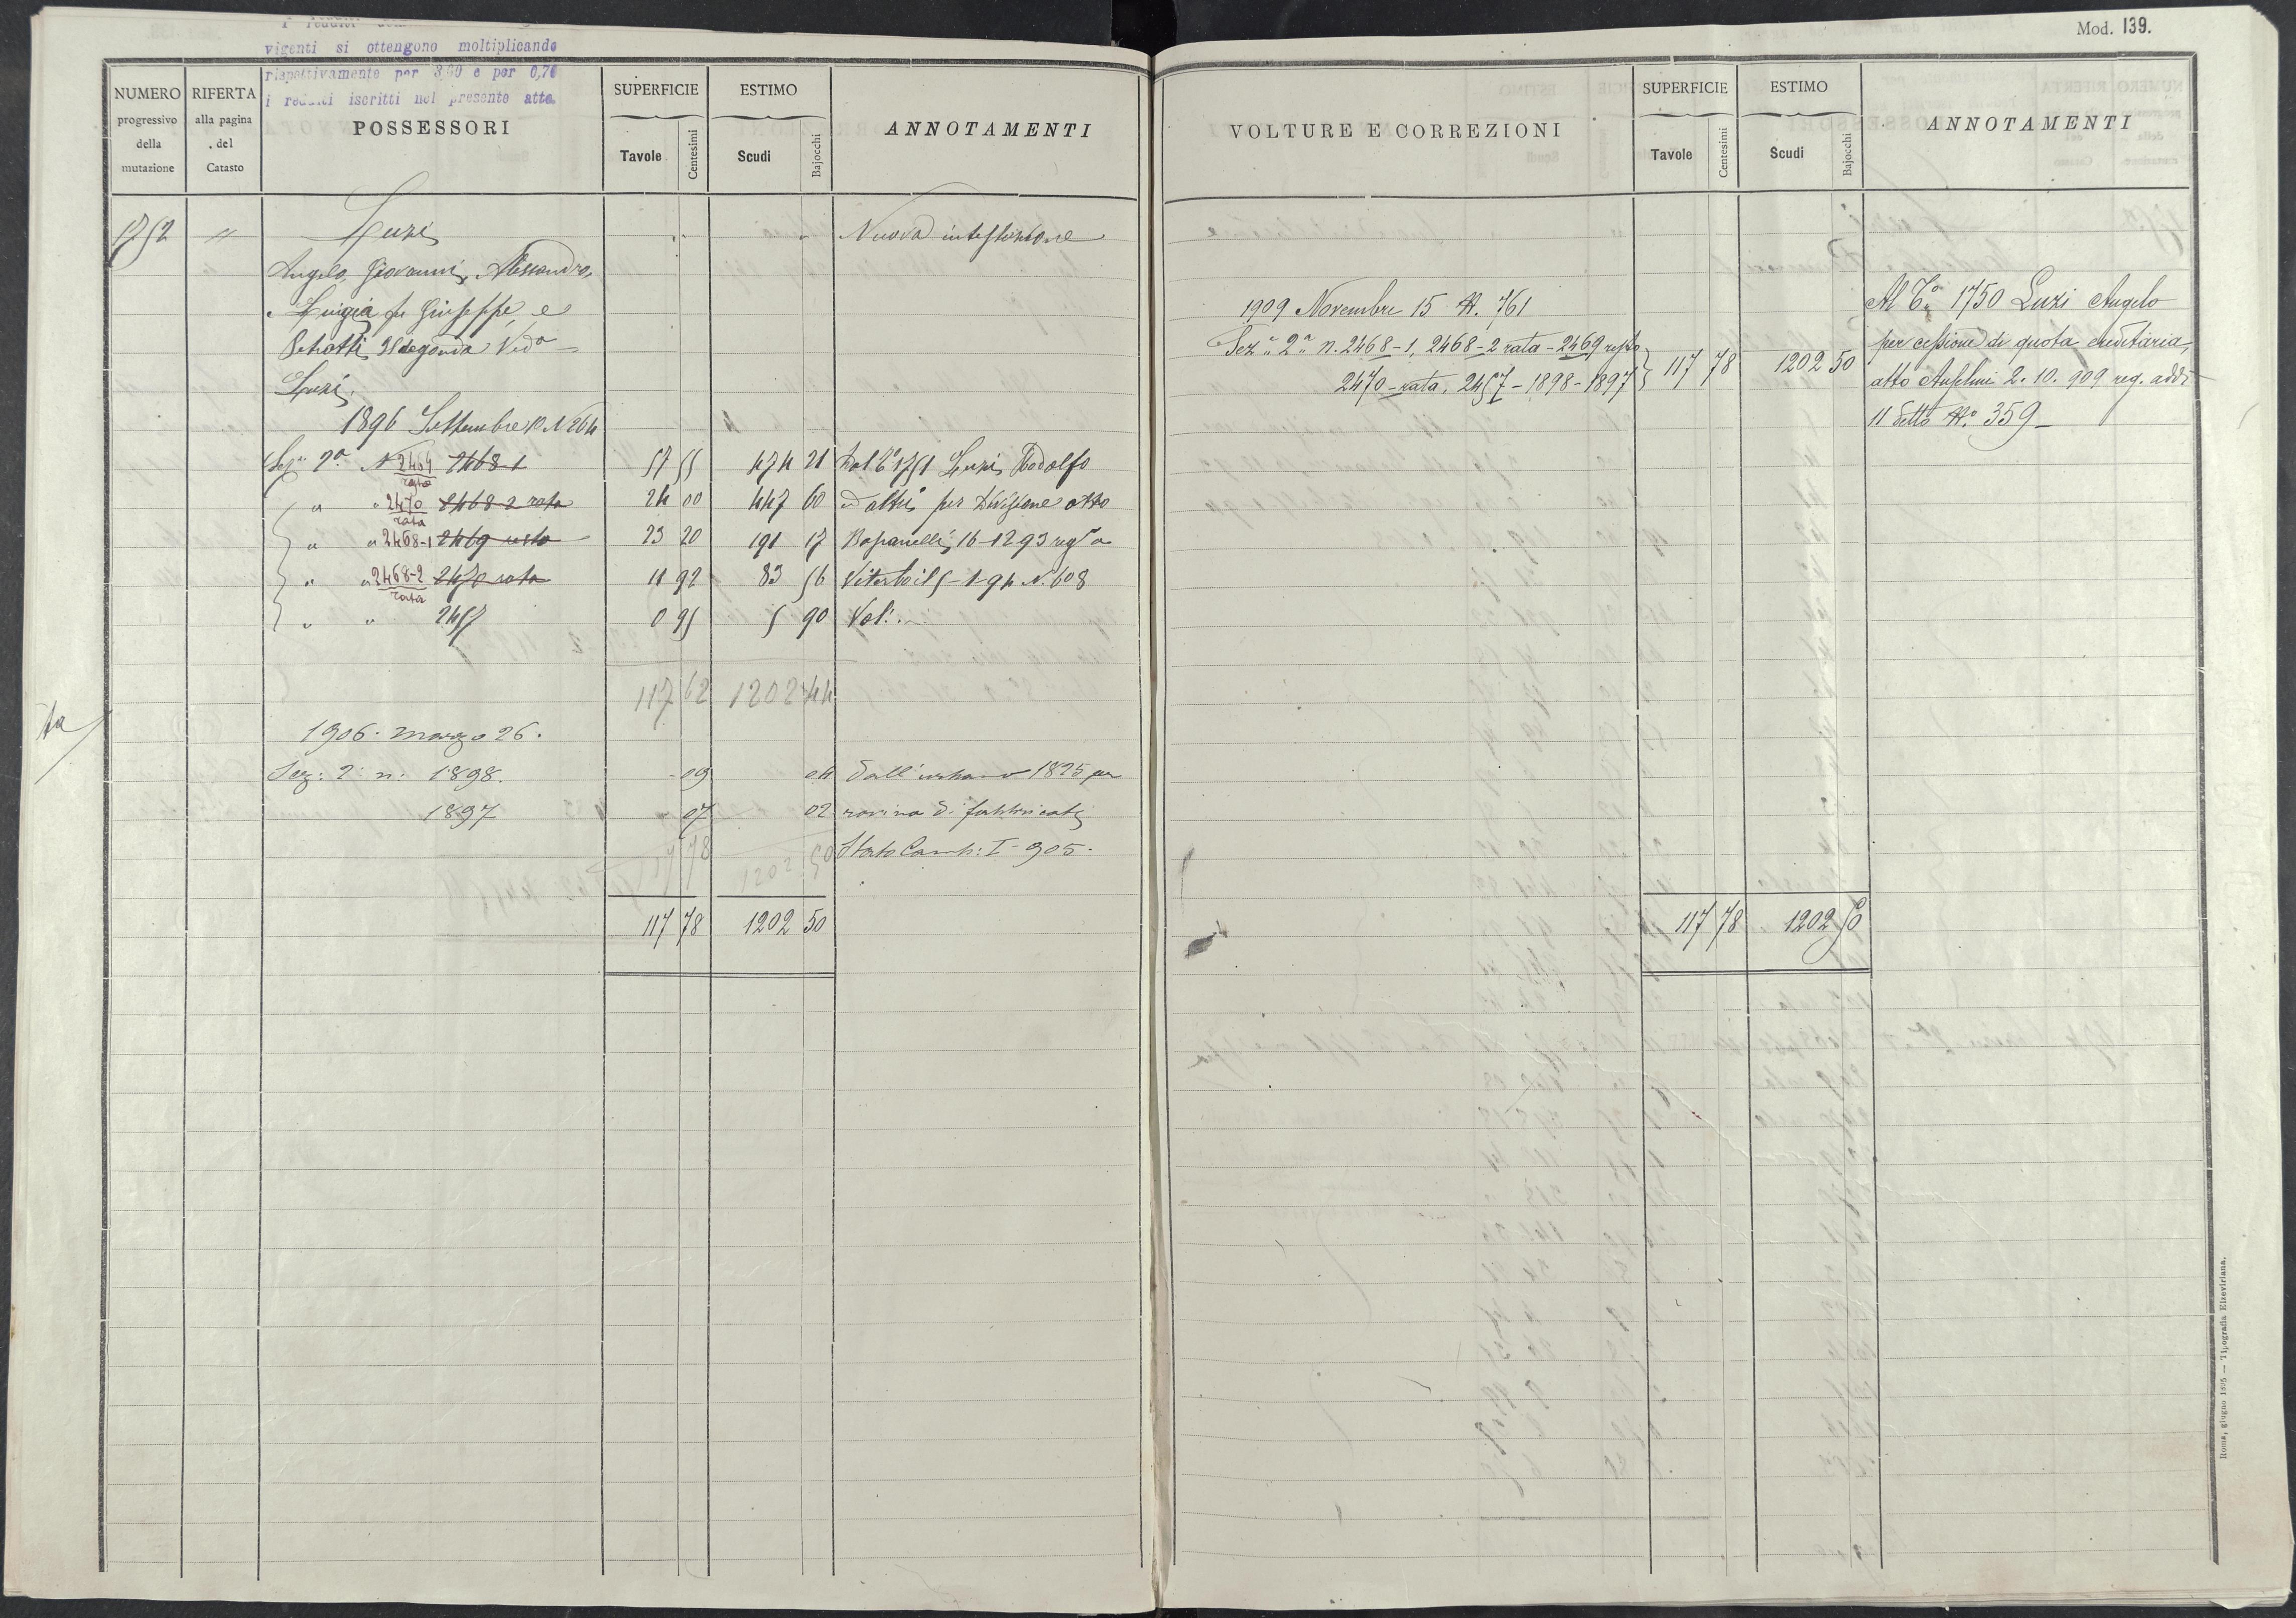 Mod. 139.
vigenti si ottengono moltiplicando
rispettivamente per 3,60 e per 0,70
i redditi iscritti nel presente atto.
NUMERO progressivo della mutazione
RIFERTA alla pagina del Catasto
POSSESSORI
SUPERFICIE
Tavole Centesimi
ESTIMO
Scudi Bajocchi
ANNOTAMENTI
1752 " Luzi Nuova intestazione
Angelo, Giovanni, Alessandro,
Luigia fu Giuseppe e
Petrotti Ildegonda Ved.a
Luzi.
1896 Settembre N 264
Sez. 2.a N 2464 2468-1 57 55 474 21 Dal C.o 1751 Luzi Rodolfo
resto
" " 2470 2468-2 rata 24 00 447 60 ed altri per Divisione atto
rata
" " 2468-1 2469 resto 23 20 191 17 16-12-93 reg.o a
" " 2468-2 2470 rata 11 92 83 56 Viterbo il 5-1-94 N. 608
rata
" " 2457 0 95 5 90 Vol.
117 62 1202 44
1906. marzo 26.
Sez: 2: n: 1898. - 09 04 Dall'urbano 1825 per
1897 - 07 02 rovina di fabbricati
117 78 1202 50 Stato Camb: I - 905.
117 78 1202 50
VOLTURE E CORREZIONI
SUPERFICIE
Tavole Centesimi
ESTIMO
Scudi Bajocchi
ANNOTAMENTI
1909 Novembre 15 N. 761
Sez.a 2.a n. 2468-1, 2468-2 rata - 2469 resto
2470 - rata, 2457 - 1898 - 1897 117 78 1202 50
Al C.o 1750 Luzi Angelo
per cessione di quota ereditaria,
atto Anselmi 2.10.909 reg. addì
11 detto N.o 359 -
117 78 1202 50
Roma, giugno 1895 — Tipografia Elzeviriana.